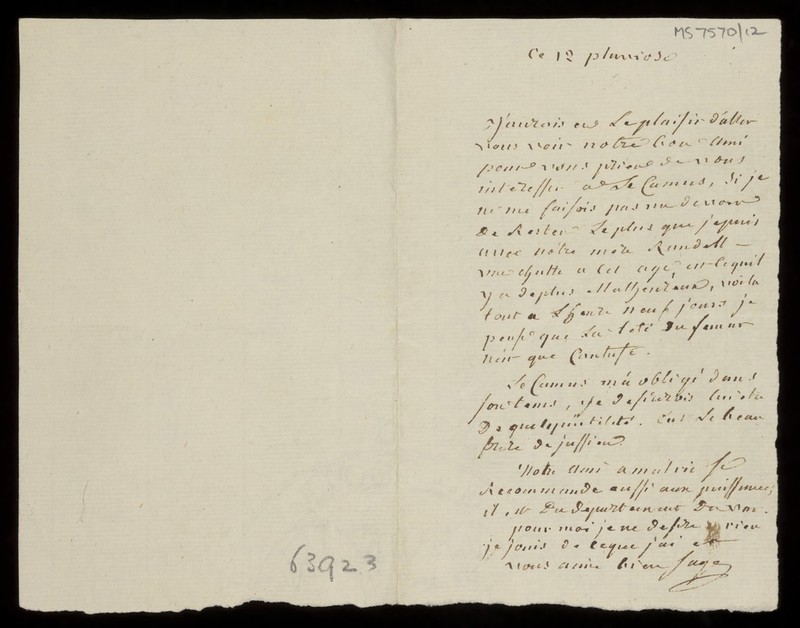 MS 7570/12
Ce 12 pluviose
J'aurois eu Le plaisir d'aller
vous voir notre bon ami
pour vous prier de vous
interesser a Le Camus, Si je
ne me faisois pas un devoir
de Rester Le plus que je puis
avec notre mere Randell
une chutte a cet age est ce quil
y a de plus Malheureux, voila
tout a L'heure neuf jours je
pense que La tete du femur
n'est que Contuse.
Le Camus m'a obligé dans
son tems, je desirerois lui etre
De quelqu'utilité. C'est Le beau
frere de jussieu.
Notre ami amalric se
Recommande aussi aux puissances,
il est Du departement Du var.
pour moi je ne desire rien
je jouis de ceque j'ai et
vous aime bien Sage
63923